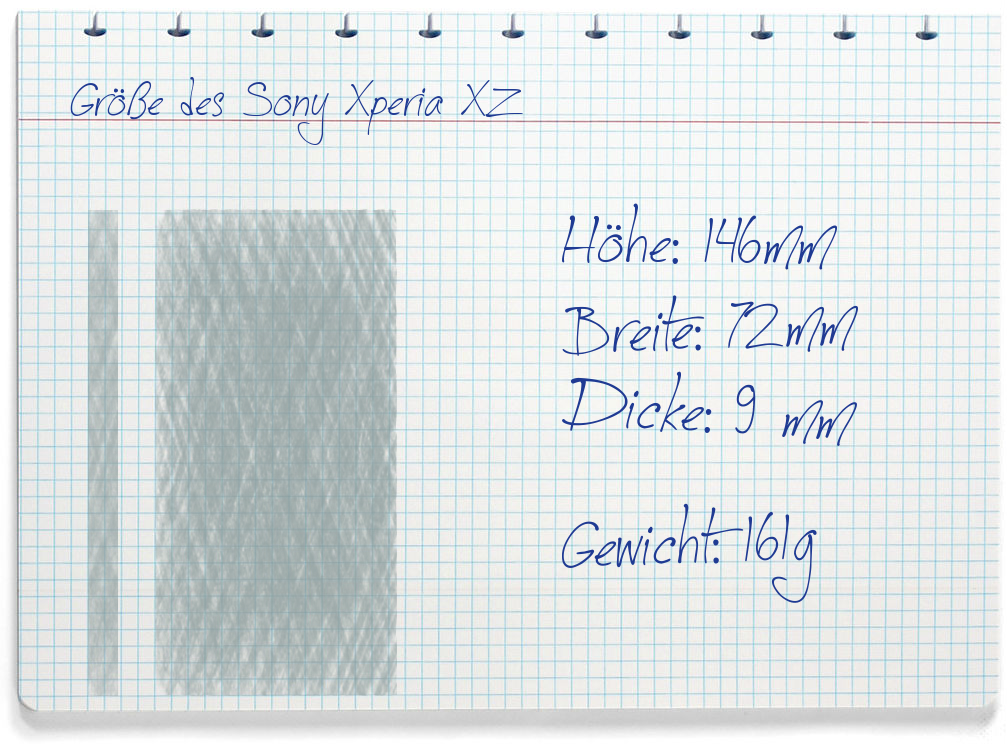 Größe des Sony Xperia XZ
Höhe: 146mm
Breite: 72mm
Dicke: 9 mm
Gewicht: 161g